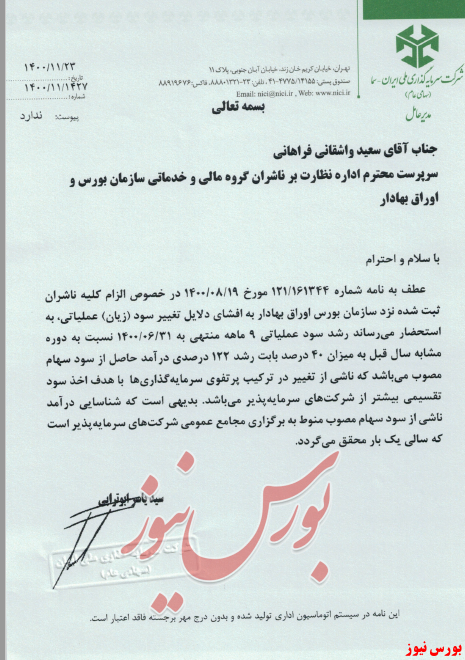 شرکت سرمایه‌گذاری ملی ایران-سما
(سهامی عام)
مدیرعامل
تهران، خیابان کریم خان زند، خیابان آبان جنوبی، پلاک ۱۱
صندوق پستی: ۴۱-۴۷۷۵/۱۴۱۵۵، تلفن: ۲۳-۸۸۸۰۱۳۲۱، فاکس: ۸۸۹۱۹۶۷۶
Email: nici@nici.ir , Web: www.nici.ir
۱۴۰۰/۱۱/۲۳
تاریخ:
۱۴۰۰/۱۱/۱۴۲۷
شماره:
پیوست: ندارد
بسمه تعالی
جناب آقای سعید واشقانی فراهانی
سرپرست محترم اداره نظارت بر ناشران گروه مالی و خدماتی سازمان بورس و
اوراق بهادار
با سلام و احترام
عطف به نامه شماره ۱۲۱/۱۶۱۳۴۴ مورخ ۱۴۰۰/۰۸/۱۹ در خصوص الزام کلیه ناشران
ثبت شده نزد سازمان بورس اوراق بهادار به افشای دلایل تغییر سود (زیان) عملیاتی، به
استحضار می‌رساند رشد سود عملیاتی ۹ ماهه منتهی به ۱۴۰۰/۰۶/۳۱ نسبت به دوره
مشابه سال قبل به میزان ۴۰ درصد بابت رشد ۱۲۲ درصدی درآمد حاصل از سود سهام
مصوب می‌باشد که ناشی از تغییر در ترکیب پرتفوی سرمایه‌گذاری‌ها با هدف اخذ سود
تقسیمی بیشتر از شرکت‌های سرمایه‌پذیر می‌باشد. بدیهی است که شناسایی درآمد
ناشی از سود سهام مصوب منوط به برگزاری مجامع عمومی شرکت‌های سرمایه‌پذیر است
که سالی یک بار محقق می‌گردد.
سید یاسر ابوترابی
بورس نیوز
این نامه در سیستم اتوماسیون اداری تولید شده و بدون درج مهر برجسته فاقد اعتبار است.
بورس نیوز